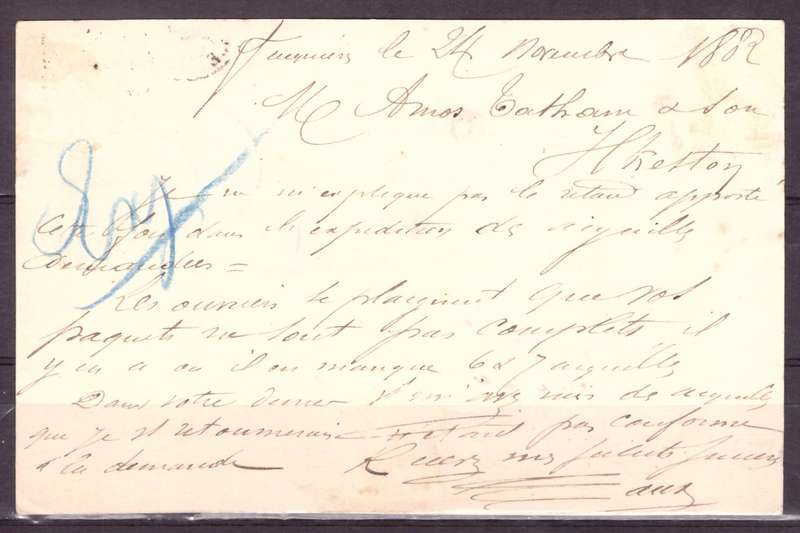 le 24 Novembre 1882
M Amos Tatham & Son
Ilkeston
Je ne m'explique pas le retard apporté
cette fois dans l'expédition des aiguilles
demandées =
Les ouvriers se plaignent que vos
paquets ne sont pas complets il
y en a où il en manque 6 à 7 aiguilles
Dans votre dernier avez mis des aiguilles
que je retournerai pas conforme
à la demande Recevez mes saluts